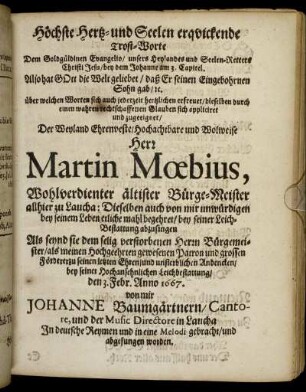 Höchste Hertz-und Seelen erqvickende
Trost-Worte
Dem Goldgüldinen Evangelio/ unsers Heylandes und Seelen-Retters
Christi Jesu/ bey dem Johanne am 3. Capitel.
Also hat GOtt die Welt geliebet/ daß Er seinen Eingebohrnen
Sohn gab/ ꝛc.
über welchen Worten sich auch jederzeit hertzlichen erfreuet/ dieselben durch
einen wahren rechtschaffenen Glauben sich appliciret
und zugeeignet/
Der Weyland Ehrenveste/ Hochachtbare und Wolweise
Herr
Martin Mœbius,
Wohlverdienter ältister Bürge-Meister
allhier zu Laucha: Dieselben auch von mir unwürdigen
bey seinem Leben etliche mahl begehret/ bey seiner Leich-
Bestattung abzusingen
Als seynd sie dem selig verstorbenen Herrn Bürgemei-
ster/ als meinen Hochgeehrten gewesenen Patron und grossen
Förderer zu seinen letzten Ehren und unsterblichen Andencken/
bey seiner Hochansehnlichen Leichbestattung/
den 3. Febr. Anno 1667.
von mir
JOHANNE Baumgärtnern/ Canto-
re, und der Music Directore in Laucha
In deutsche Reymen und in eine Melodi gebracht/ und
abgesungen worden.